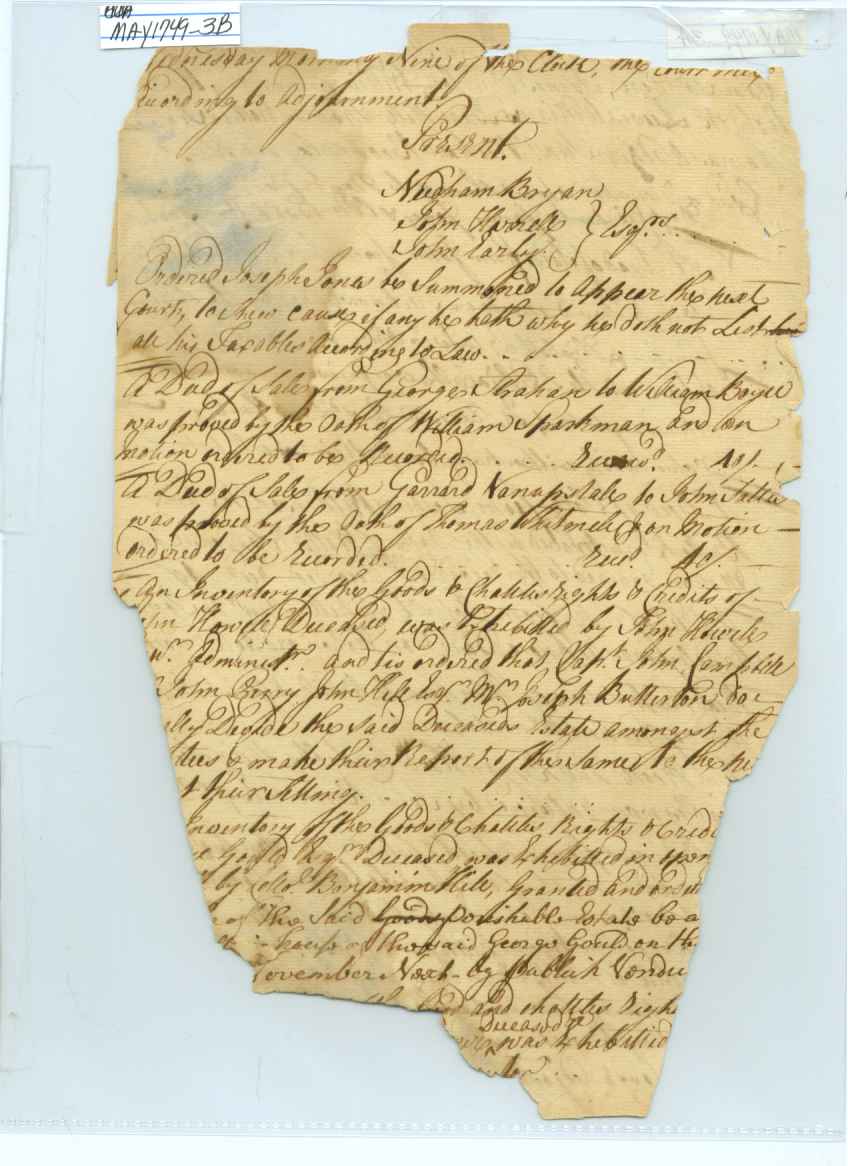 MAY1749-3B
ednesday Morning Nine of the Clock, the Court mett
according to Adjournment.
Present.
Needham Bryan
John Howell } Esqrs.
John Early
Ordered Joseph Jones be Summoned to Appear the next
Court, to shew cause if any he hath why he doth not List
all his Taxables According to Law.
A Deed of Sale from George Strahan to William Boyce
was proved by the Oath of William Sparkman and on
Motion ordered to be Recorded.
A Deed of Sale from Garrard Vanupstale to John
was proved by the Oath of Thomas Whitmell & on Motion
ordered to be recorded.
An Inventory of the Goods & Chattles rights & Credits of
hn Howell Deceased, was Exhebitted by John Howell
Administr. and tis ordered that Capt. John Campbell
John Berry John Hill Esqr. Mr. Joseph Butterton do
Devide the said Deceaseds Estate amongst the
& make their Report of the same to the ne
t their Sitting.
Inventory of the Goods & Chattles Rights & Credi
Gould Esqr. Deceased was Exhebitted in open
by Collo. Benjamin Hill, Granted and order
of the Said Goods perishable Estate be
house of the said George Gould on the
ovember Next by publick Vendu
and chattles Righ
Deceased
was Exhebitted